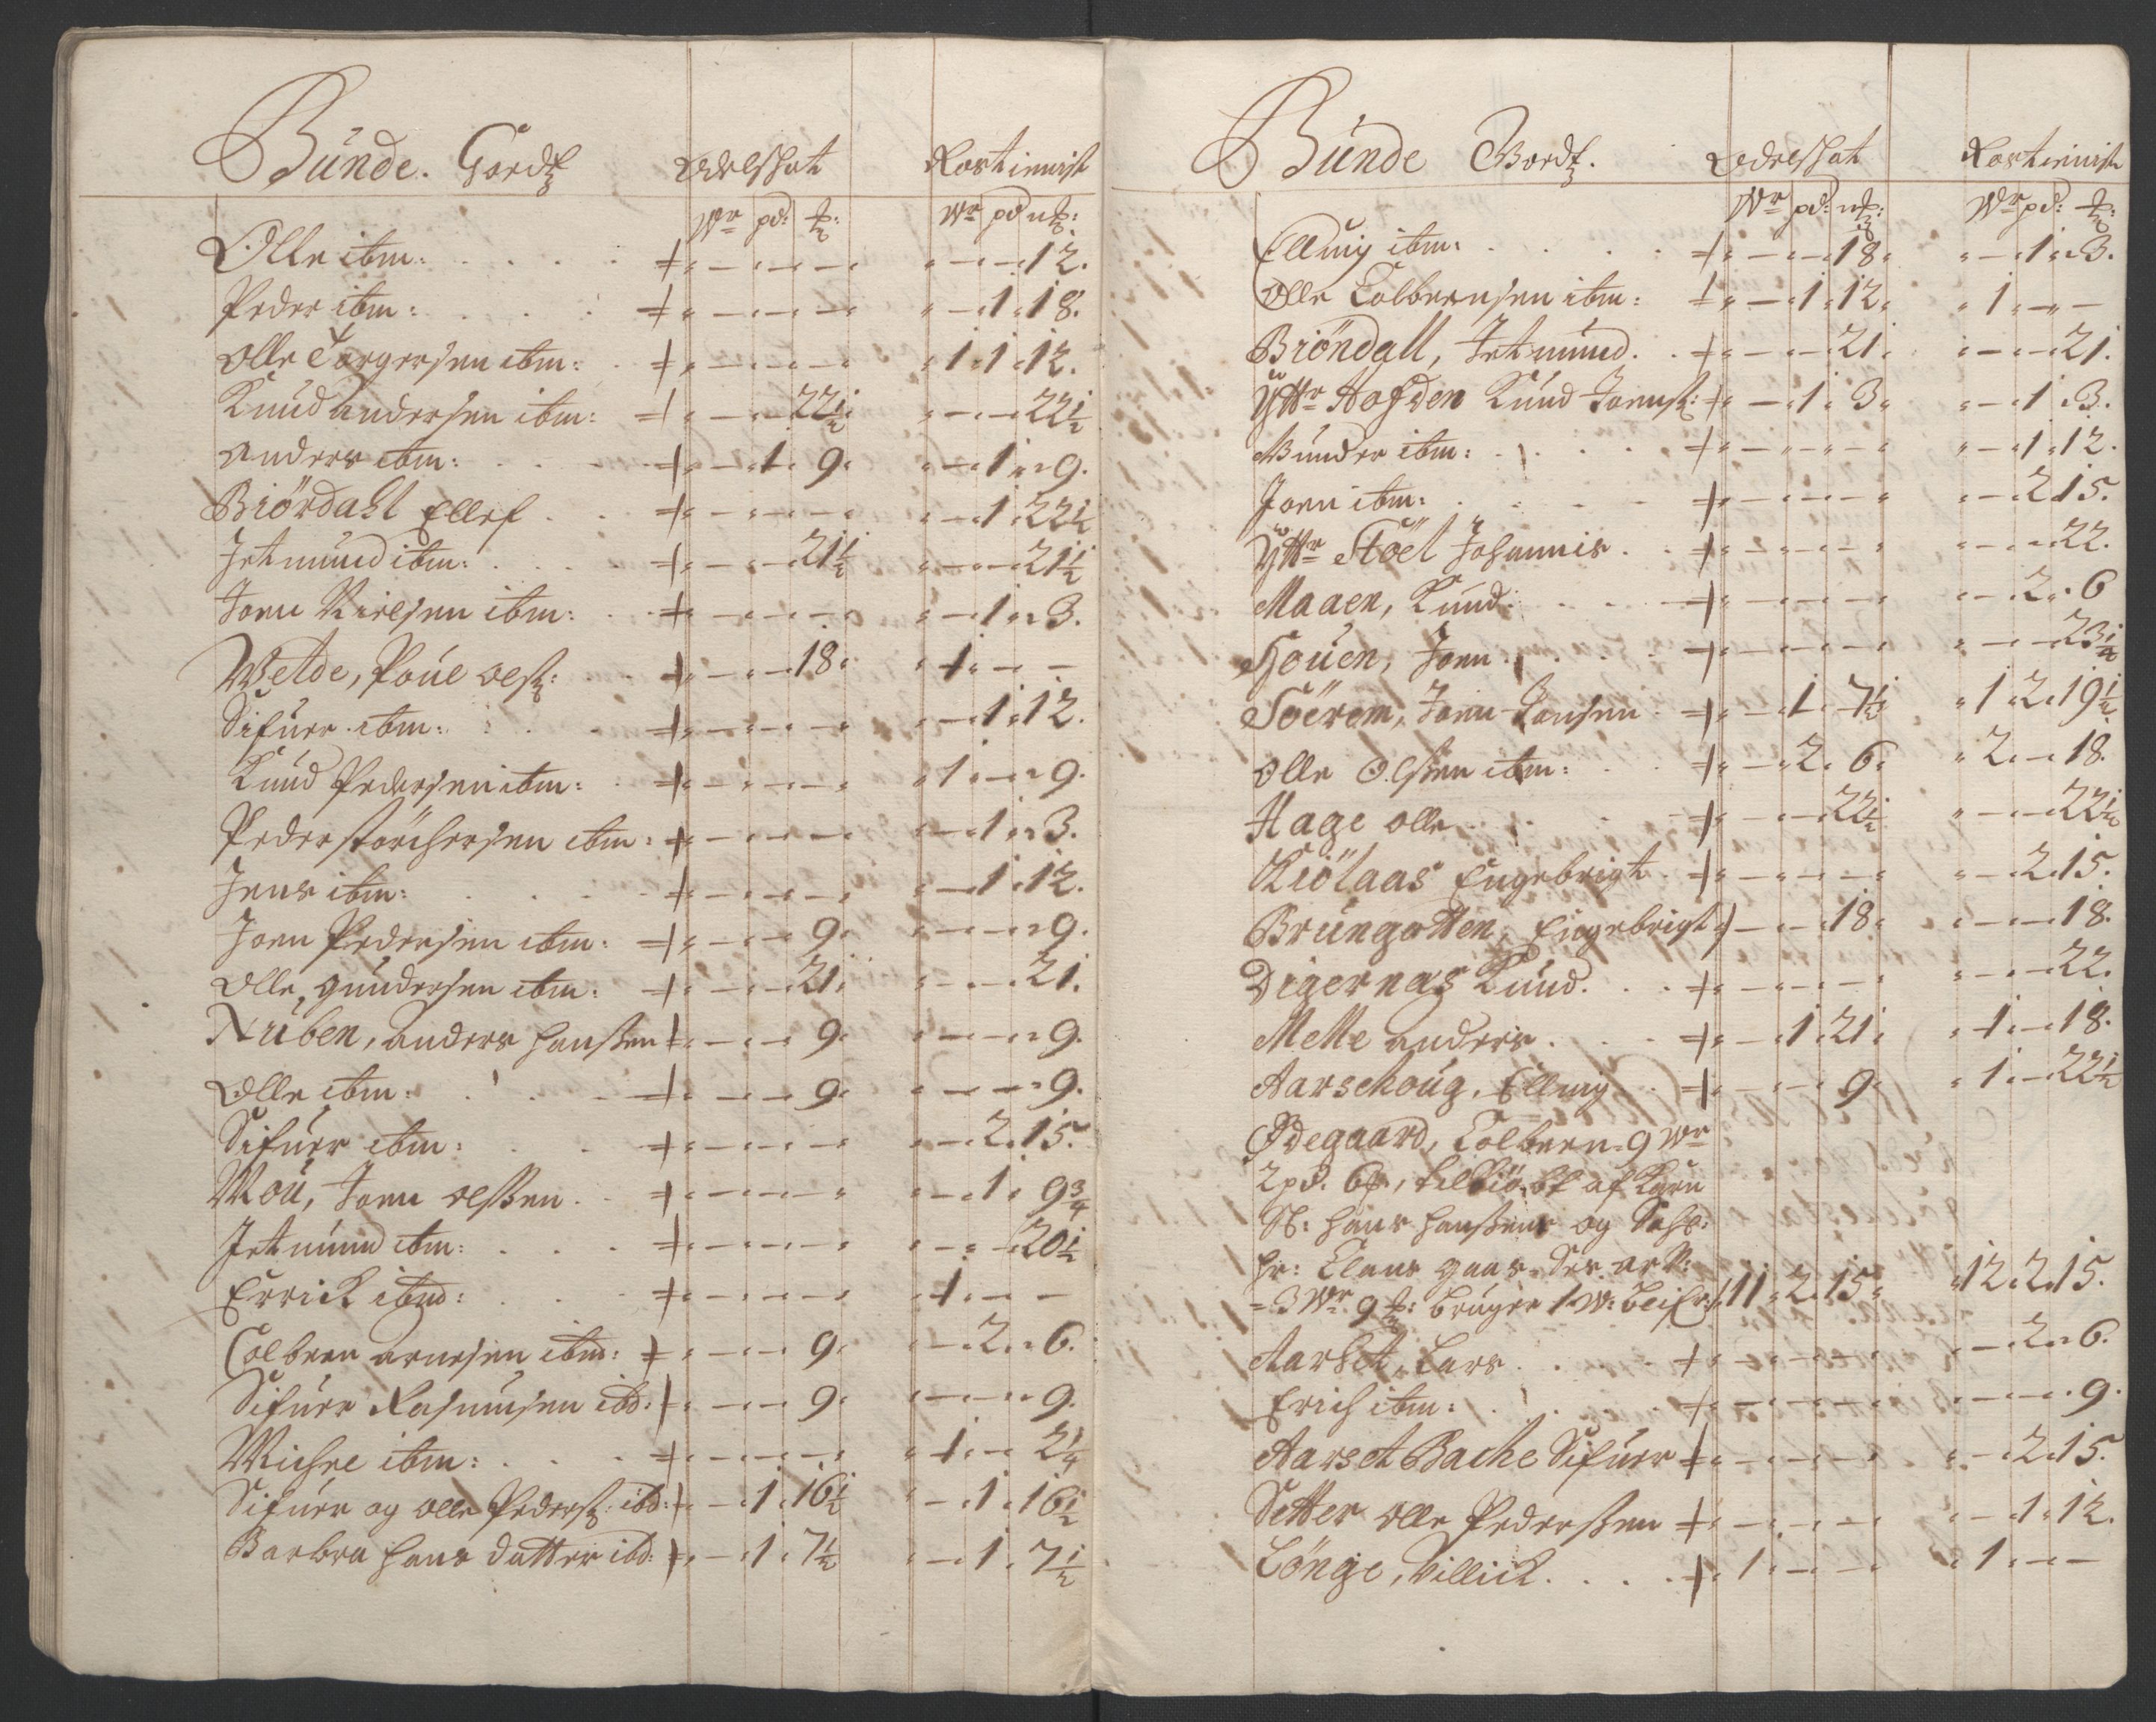 Bünde. Gordz Odelshat Rostienist
Wr pd: ƪ: Wr pd ƪ:
Olle ibm: - - - - - 12.
Peder ibm: - - - - 1 18.
Olle Torgersen ibm: - - - 1 1 12.
Knud andersen ibm: - - 22½ - - 22½
Anders ibm: - 1 9. - 1 9.
Biördahl Ellef - - - - 1 22½
Jetmund ibm: - - 21½ - - 21½
Joen Nielsen ibm: - - - - 1 3.
Welde, Poúl olsz: - - 18. 1 - -
Sifuer ibm: - - - - 1 12.
Knud Pedersen ibm: - - - 1 - 9.
Peder störchersen ibm: - - - - 1 3.
Jens ibm: - - - - 1 12.
Joen Pedersen ibm: - - 9. - - 9.
Olle gundersen ibm: - - 21. - - 21.
Nüben, anders hanßen - - 9. - - 9.
Olle ibm: - - 9. - - 9.
Sifuer ibm: - - - - 2 15.
Moú, Joen olßen - - - - 1 9¾
Jetmund ibm: - - - - - 20½
Errick ibmd: - - - 1 - -
Colbern arnesen ibm: - - 9. - 2 6.
Sifuer Rasmusen ibd: - - 9. - - 9.
Michel ibm: - - - 1 - 2¼
Sifuer og olle Pedersz: ibd: - 1 16½ - 1 16½
Barbra hans datter ibd: - 1 7½ - 1 7½
Bünde Gordz. Odelshat Rostienist
Wr pd: ƪ: Wr pd: ƪ:
Elling ibm: - - 18. - 1 3.
Olle Colbernsen ibm: - 1 12. 1 - -
Biöndall, Jetmund. - - 21. - - 21.
Ÿttr Hofden Knud Joensz: - 1 3. - 1 3.
Gunder ibm: - - - - 1 12.
Joen ibm: - - - - 2 15.
Ÿttr Stöel Johannis - - - - - 22.
Maaen, Knud. - - - - 2 6
Hoúen, Joen - - - - - 23¼
Söerem, Joen Jonsen - 1 7½ 1 2 19½
Olle Olßen ibm: - 2 6. 2 - 18.
Hage olle - - 22½ - - 22½
Kiölaas Engebrigt - - - - 2 15.
Brüngotten, Eingebrigt - - 18. - - 18.
Digernas Knud. - - - - - 22.
Melle anders - 1 21. 1 - 18.
Aarschoug, Elling - - 9. 1 - 22½
Ødegaard, Colbern 9 Wr
2 pd. 6 ƪ, til
Sl: hans hanßens og Sahl:
hr: Claus gaas
3 Wr 9 ƪ: bruger 1 W: 11 2 15. 12 2 15.
Aarset, Lars - - - - 2 6.
Erich ibm: - - - - - 9.
Aarset Bache Sifuer - - - - 2 15.
Setter olle Pederßen - - - - 1 12.
Lönge, Villick. 1 - - 1 - -